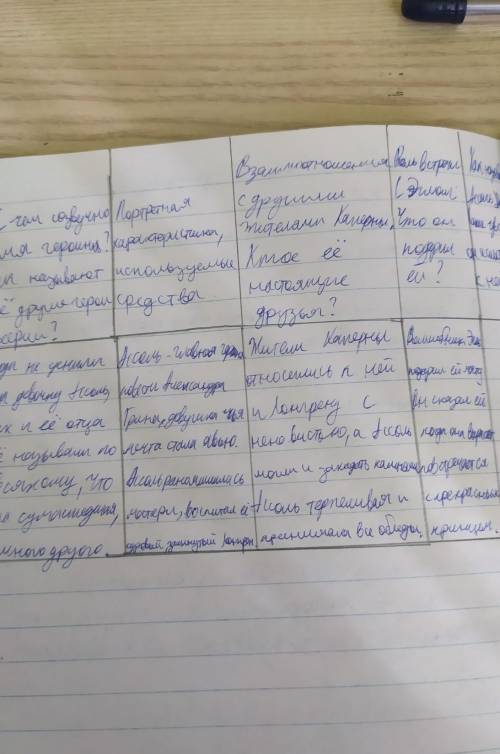 С чем созвучно
имя героини?
называют
её другие герои
Портретная
характеристика,
используемые
средства.
Взаимоотношения
с другими
жителями Каперны.
Кто её
настоящие
друзья?
Роль встречи
с Эглем
Что он
подарил
ей?
не ценили
девочку Ассоль,
и её отца
называли по
всякому, что
сумасшедшая,
много другого.
Ассоль - главная
повести Александра
Грина, девушка чья
мечта стала явью.
Ассоль рано лишилась
матери, воспитал её
суровый замкнутый Лонгрен
Жители Каперны
относились к ней
и Лонгрену с
ненавистью, а Ассоль
могли и закидать камнями
Ассоль терпеливая и
принимала все обиды.
подарил ей
он сказал ей
когда она вырастет
встретится
с прекрасным
принцем.